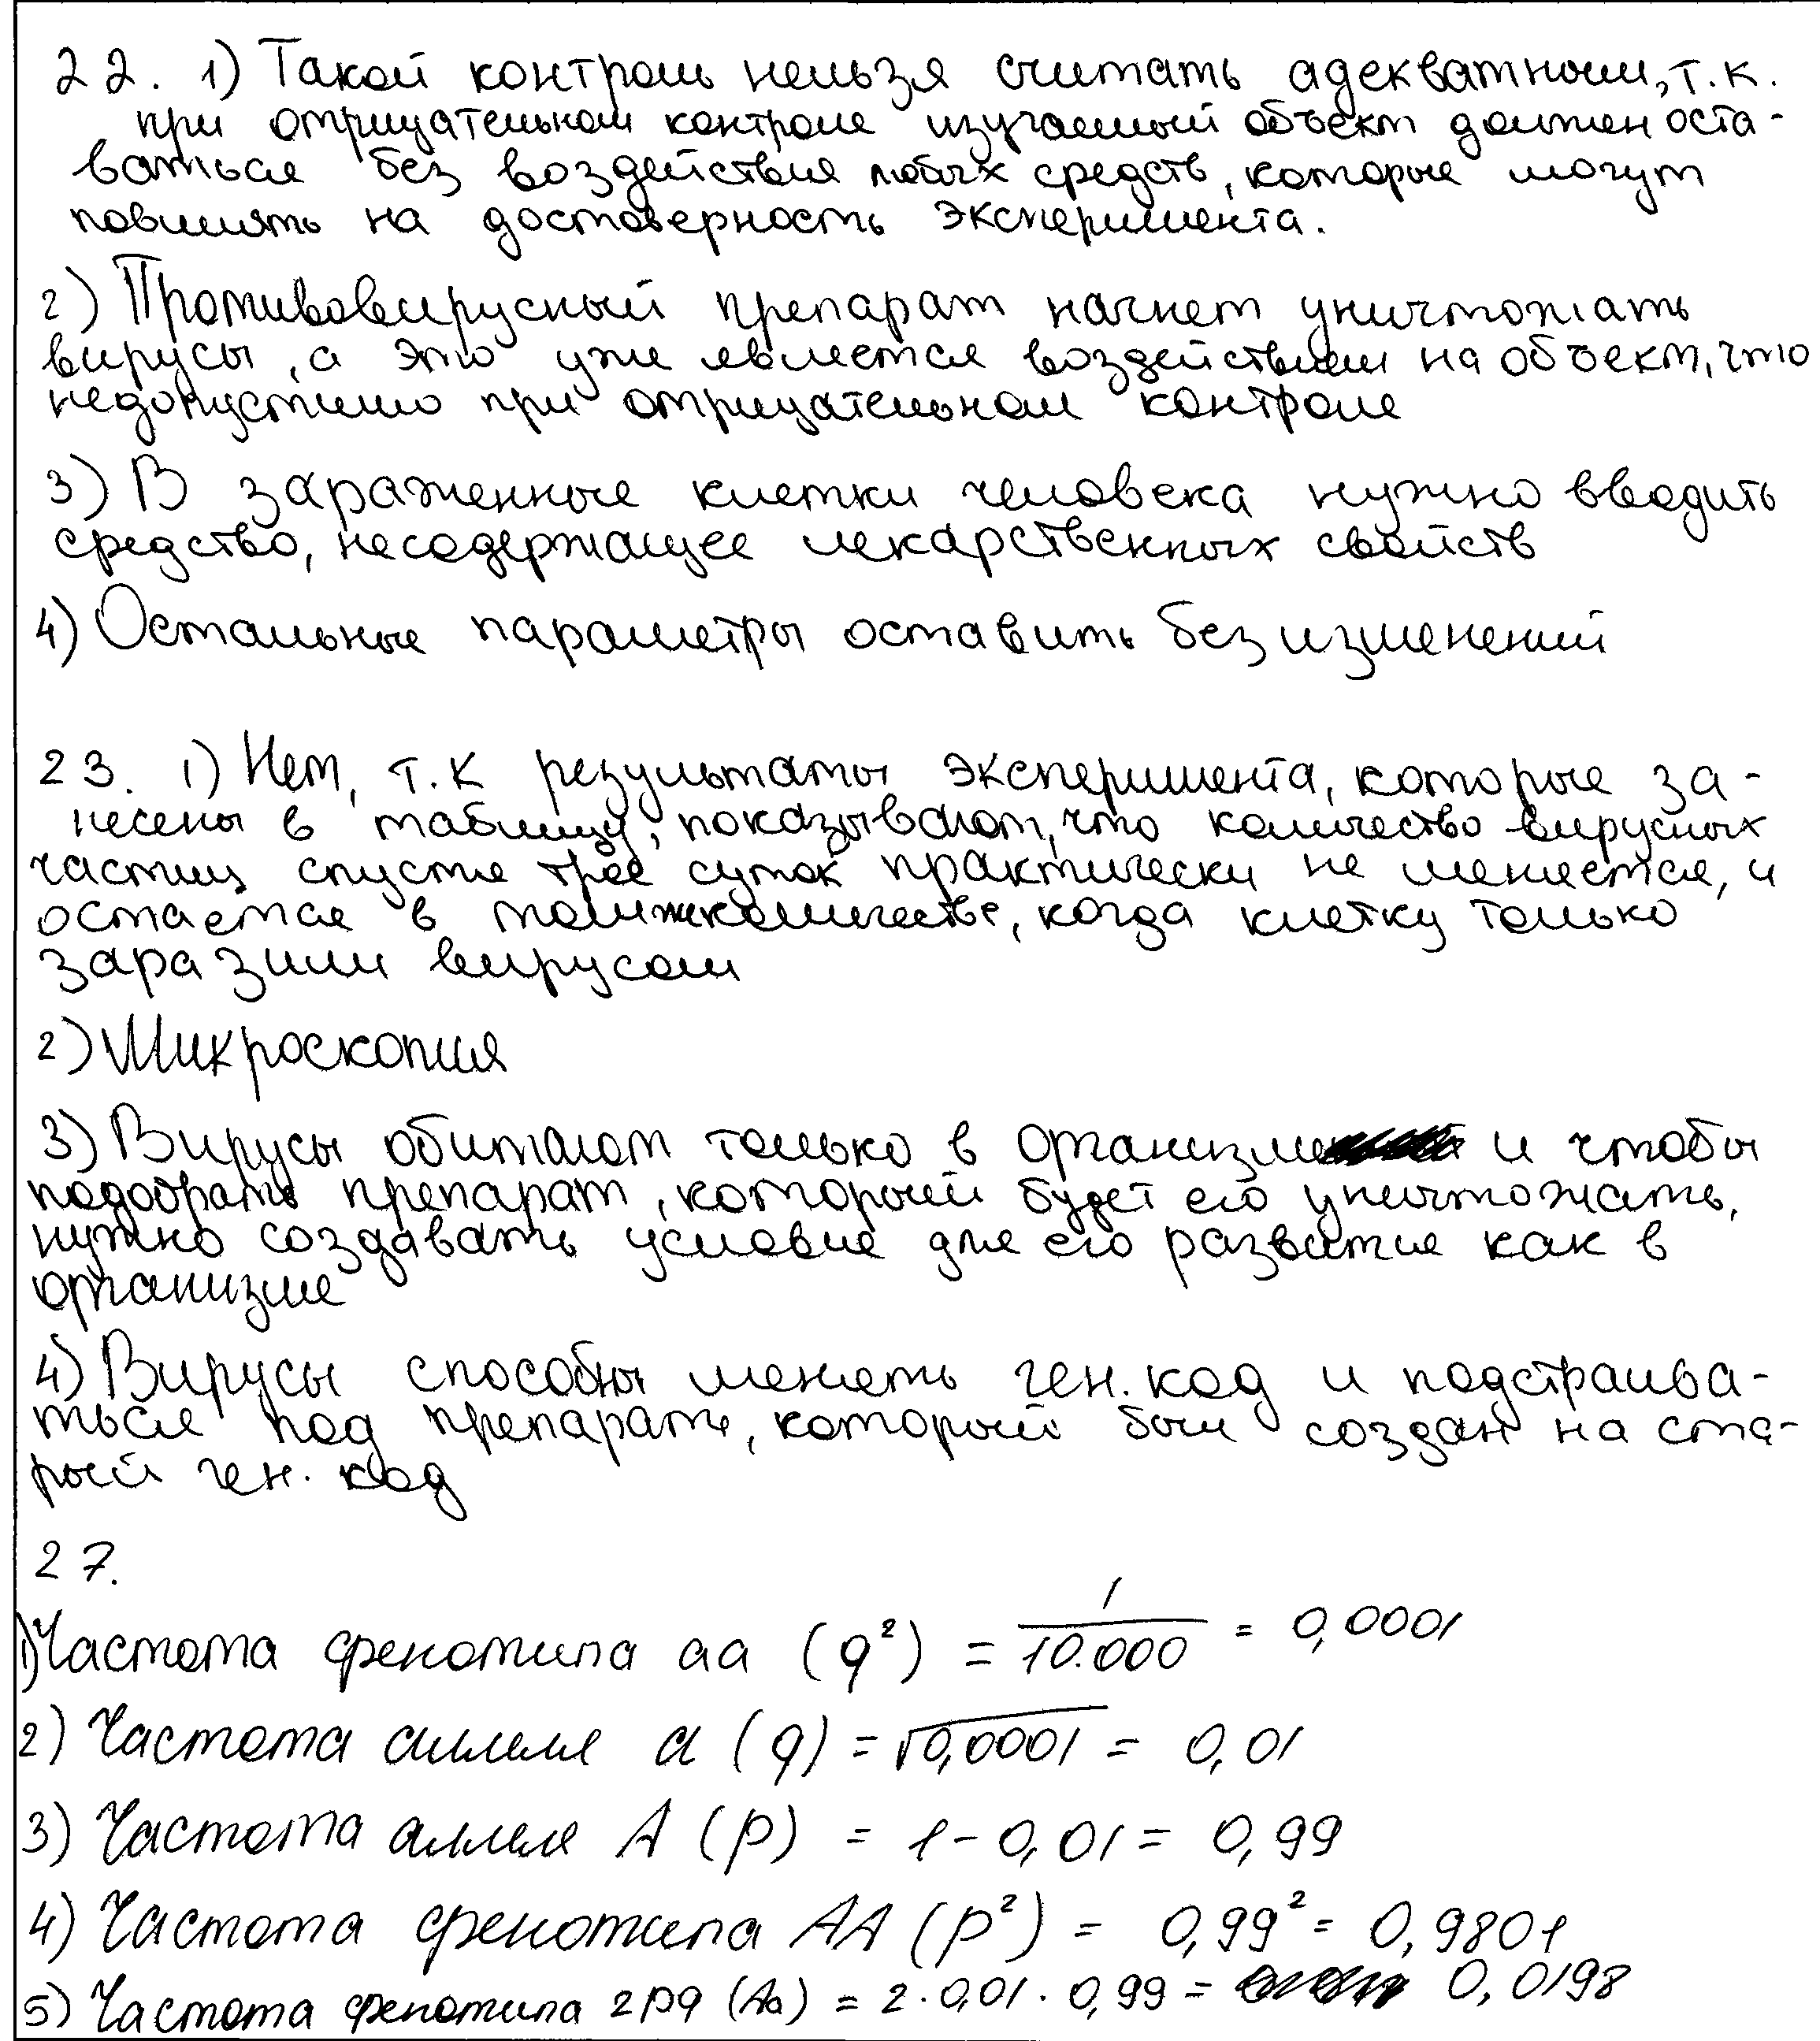 22. 1) Такой контроль нельзя считать адекватным, т.к.
при отрицательном контроле изучаемый объект должен оста-
ваться без воздействия любых средств, которые могут
повлиять на достоверность эксперимента.
2) Противовирусный препарат начнет уничтожать
вирусы, а это уже является воздействием на объект, что
недопустимо при отрицательном контроле
3) В зараженные клетки человека нужно вводить
средство, несодержащее лекарственных свойств
4) Остальные параметры оставить без изменений
23. 1) Нет, т.к результаты эксперимента, которые за-
несены в таблицу, показывают, что количество вирусных
частиц спустя трое суток практически не меняется, и
остается в том же количестве, когда клетку только
заразили вирусом
2) Микроскопия
3) Вирусы обитают только в организме и чтобы
подобрать препарат, который будет его уничтожать,
нужно создавать условие для его развитие как в
организме
4) Вирусы способны менять ген. код и подстраива-
ться под препарать, который был создан на ста-
рый ген. код
27.
1) Частота фенотипа aa (q²) = 1/10.000 = 0,0001
2) Частота аллеля a (q) = √0,0001 = 0,01
3) Частота аллеля A (p) = 1 - 0,01 = 0,99
4) Частота фенотипа AA (p²) = 0,99² = 0,9801
5) Частота фенотипа 2pq (Aa) = 2 · 0,01 · 0,99 = 0,0198